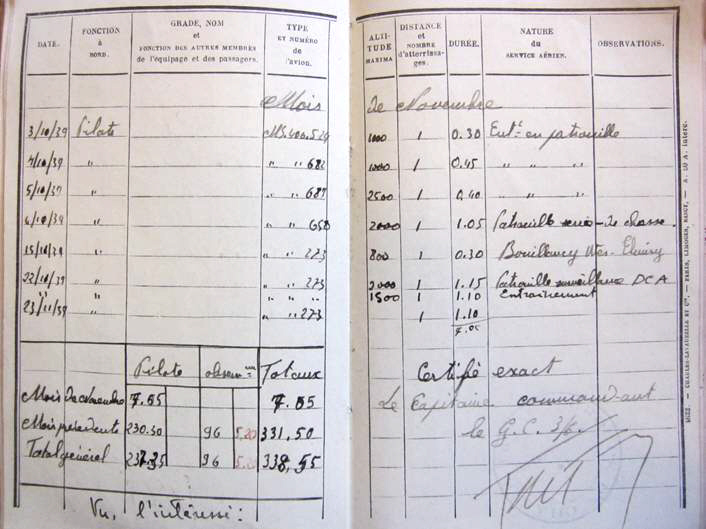 DATE.
FONCTION
à
BORD.
GRADE, NOM
et
FONCTION DES AUTRES MEMBRES
de l'équipage et des passagers.
TYPE
ET NUMÉRO
de
l'avion.
Mois
3/10/39 Pilote MS.400.524
4/10/39 " " " 682
5/10/39 " " " 687
6/10/39 " " " 650
15/10/39 " " " 273
22/10/39 " " " 273
" " " " "
23/11/39 " " 273
Pilote observ Totaux
Mois de Novembre 7.05 7.05
Mois précédents 230.30 96 5.20 331.50
Total général 96 338.55
Vu, l'intéressé:
ALTITUDE
MAXIMA
DISTANCE
et
NOMBRE
d'atterrissages.
DURÉE.
NATURE
du
SERVICE AÉRIEN.
OBSERVATIONS.
de Novembre
1000 1 0.30 Ent. en patrouille
1000 1 0.45 " " "
2500 1 0.40 " " "
2000 1 1.05 Patrouille de chasse.
800 1 0.30
2000 1 1.15 Patrouille surveillance DCA
1500 1 1.10 Entraînement
1 1.10
7.05
Certifié exact
Le Capitaine commandant
le G.C.
CHARLES-LAVAUZELLE ET Cie. — PARIS, LIMOGES, NANCY. —